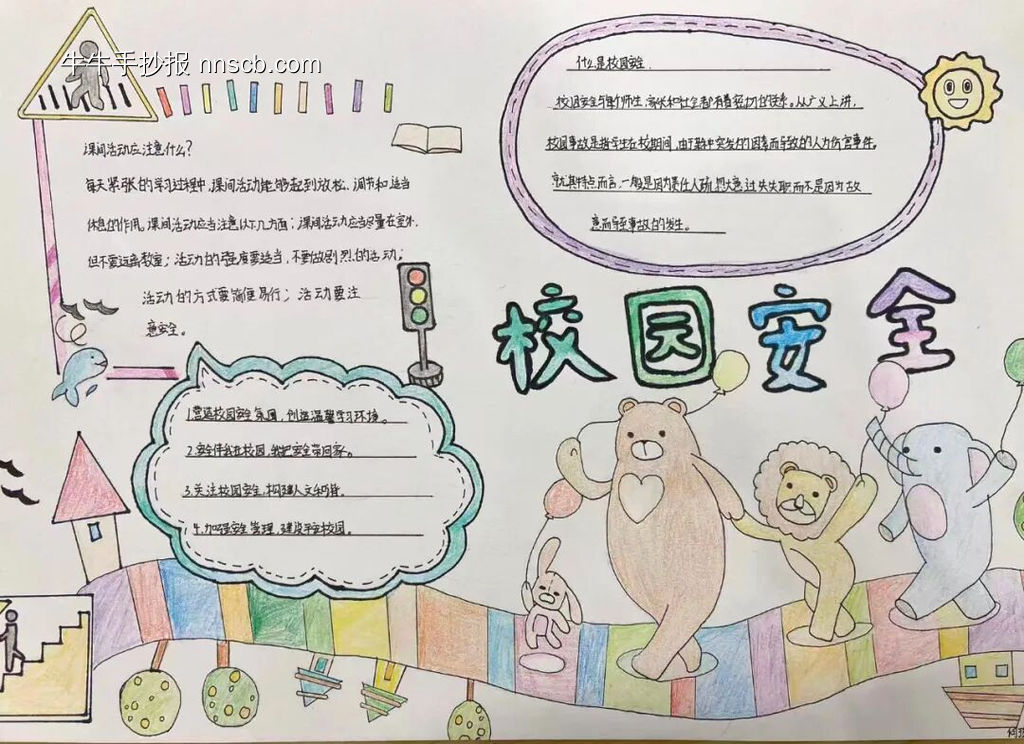 牛牛手抄报 nnscb.com
课间活动应注意什么?
每天紧张的学习过程中,课间活动能够起到放松、调节和适当
休息的作用。课间活动应当注意以下几方面:课间活动应当尽量在室外,
但不要远离教室;活动的强度要适当,不要做剧烈的活动;
活动的方式要简便易行;活动要注
意安全。
什么是校园安全
校园安全与每个师生、家长和社会都有着密切的关系。从广义上讲,
校园事故是指学生在校期间,由于某种突发的因素而导致的人为伤害事件。
就其特点而言,一般是因为责任人疏忽大意过失失职而不是因为故
意而导致事故的发生。
校园安全
1.营造校园安全氛围,创造温馨学习环境。
2.安全伴我在校园,我把安全带回家。
3.关注校园安全,构建人文和谐。
4.加强安全管理,建设平安校园。